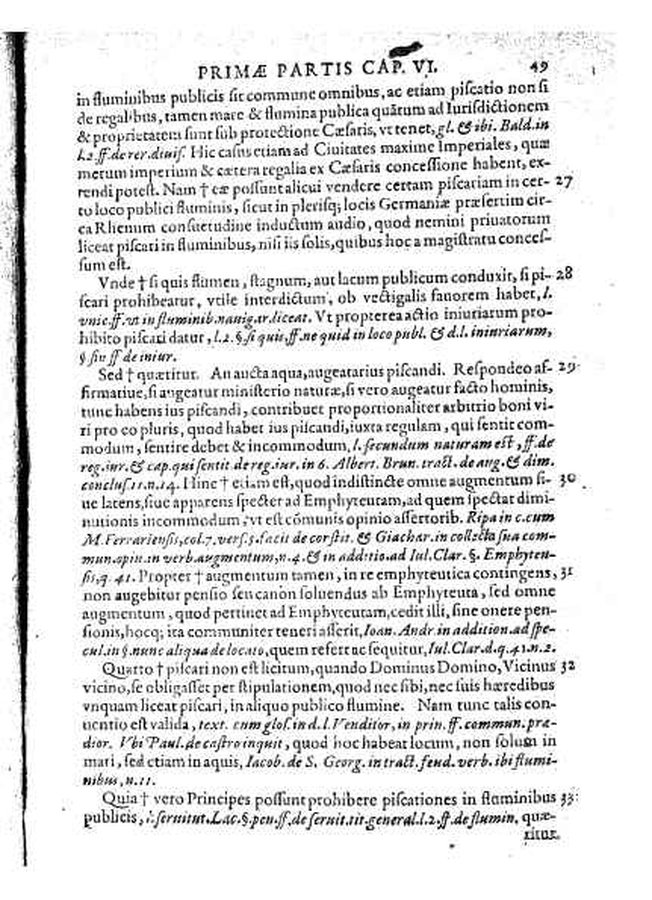 PRIMÆ PARTIS CAP. VI. 49
in fluminibus publicis sit commune omnibus, ac etiam piscatio non sit
de regalibus, tamen mare & flumina publica quãtum ad Iurisdictionem
& proprietatem sunt sub protectione Cæsaris, vt tenet, gl. & ibi. Bald. in
l.2.ff.de rer.diuis. Hic casus etiam ad Ciuitates maxime Imperiales, quæ
merum imperium & cætera regalia ex Cæsaris concessione habent, ex-
tendi potest. Nam † eæ possunt alicui vendere certam piscariam in cer- 27
to loco publici fluminis, sicut in plerisq; locis Germaniæ præsertim cir-
ca Rhenum consuetudine inductum audio, quod nemini priuatorum
liceat piscari in fluminibus, nisi iis solis, quibus hoc a magistratu conces-
sum est.
Vnde † si quis flumen, stagnum, aut lacum publicum conduxit, si pi- 28
scari prohibeatur, vtile interdictum, ob vectigalis fauorem habet, l.
vnic.ff.vt in fluminib.nauigar.liceat. Vt propterea actio iniuriarum pro-
hibito piscari datur, l.2.§.si quis,ff.ne quid in loco publ. & d.l. iniuriarum,
§ fin ff de iniur.
Sed † quæritur. An aucta aqua, augeatur ius piscandi. Respondeo af- 29
firmatiue, si augeatur ministerio naturæ, si vero augeatur facto hominis,
tunc habens ius piscandi, contribuet proportionaliter arbitrio boni vi-
ri pro eo pluris, quod habet ius piscandi, iuxta regulam, qui sentit com-
modum, sentire debet & incommodum, l. secundum naturam est, ff. de
reg.iur. & cap. qui sentit. de reg. iur. in 6. Albert. Brun. tract. de aug. & dim.
conclus.11.n.14. Hinc † etiam est, quod indistincte omne augmentum si- 30
ue latens, siue apparens spectet ad Emphyteutam, ad quem spectat dimi-
nutionis incommodum, vt est cõmunis opinio assertorib. Ripa in c. cum
M. Ferrariensis, col.7. vers.3. facit de constit. & Giachar. in collecta sua com-
mun.opin. in verb. augmentum, n.4. & in additio. ad Iul. Clar. §. Emphyteu-
sis, q. 41. Propter † augmentum tamen, in re emphyteutica contingens, 31
non augebitur pensio seu canon soluendus ab Emphyteuta, sed omne
augmentum, quod pertinet ad Emphyteutam, cedit illi, sine onere pen-
sionis, hocq; ita communiter teneri asserit, Ioan. Andr. in addition. ad spe-
cul. in §. nunc aliqua de locato, quem refert ac sequitur, Iul. Clar. d. q. 41. n. 2.
Quarto † piscari non est licitum, quando Dominus Domino, Vicinus 32
vicino, se obligasset per stipulationem, quod nec sibi, nec suis hæredibus
vnquam liceat piscari, in aliquo publico flumine. Nam tunc talis con-
uentio est valida, text. cum glos. in d. l. Venditor, in prin. ff. commun. præ-
dior. Vbi Paul. de castro inquit, quod hoc habeat locum, non solum in
mari, sed etiam in aquis, Iacob. de S. Georg. in tract. feud. verb. ibi flumi-
nibus, n. 11.
Quia † vero Principes possunt prohibere piscationes in fluminibus 33
publicis, l. seruitut. Lac. §. pen. ff. de seruit. tit. general. l. 2. ff. de flumin. quæ-
ritur.